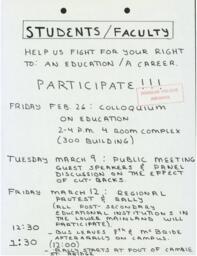 STUDENTS / FACULTY
HELP US FIGHT FOR YOUR RIGHT
TO: AN EDUCATION / A CAREER.
PARTICIPATE !!!
FRIDAY FEB. 26: COLLOQUIUM
ON EDUCATION
2-4 P.M. 4 ROOM COMPLEX
(300 BUILDING)
TUESDAY MARCH 9: PUBLIC MEETING
GUEST SPEAKERS & PANEL
DISCUSSION ON THE EFFECT
OF CUT-BACKS.
FRIDAY MARCH 12: REGIONAL
PROTEST & RALLY
(ALL POST-SECONDARY
EDUCATIONAL INSTITUTIONS IN
THE LOWER MAINLAND WILL
PARTICIPATE)
12:30 - BUS LEAVES 8th & McBRIDE
AFTER RALLY ON CAMPUS.
(12:00)
1:30 - RALLY STARTS AT FOOT OF CAMBIE
ST. BRIDGE